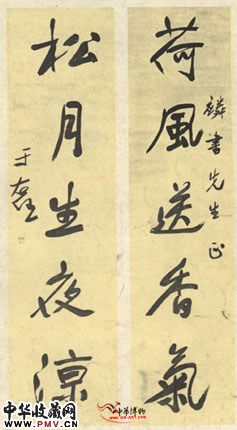 荷風送香氣
麟書先生正
松月生夜涼
于右任
中华收藏网
www.PMV.CN
中华博物